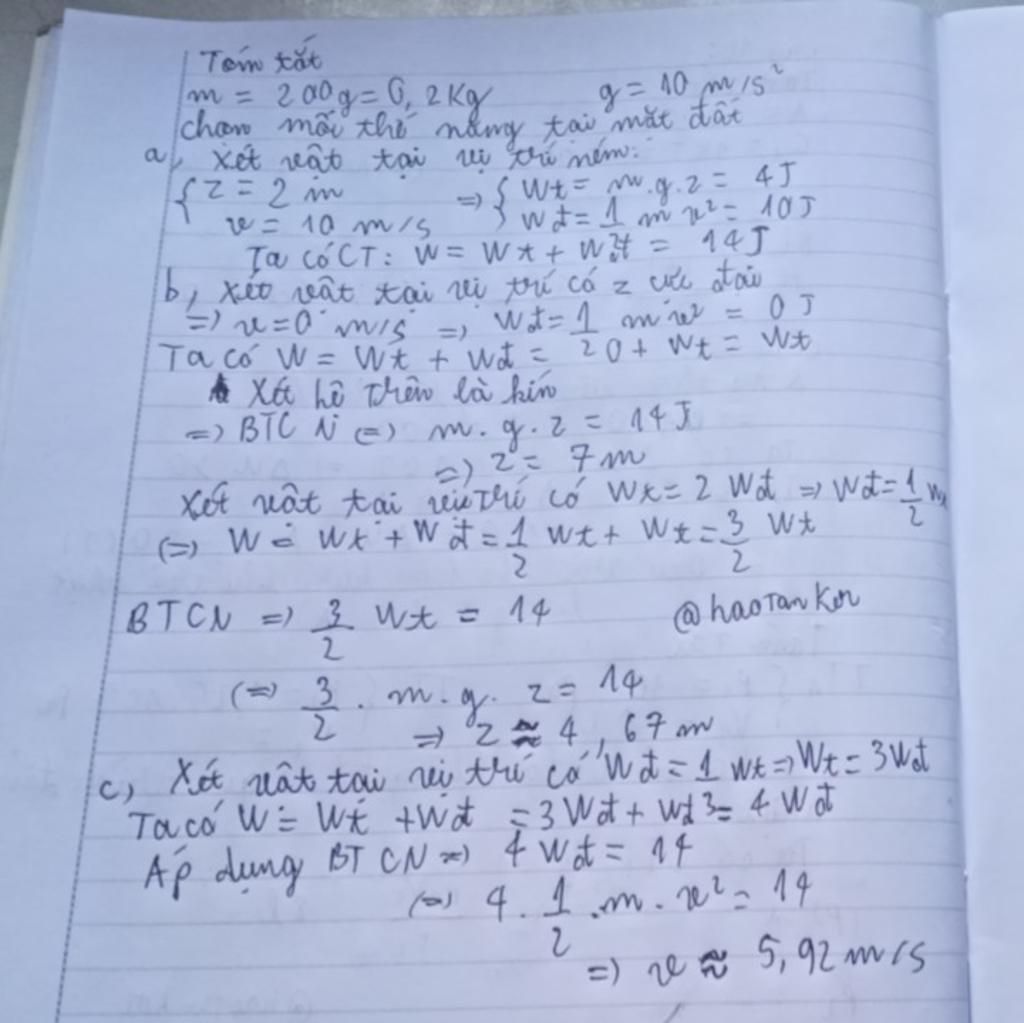 Tóm tắt
m = 200g = 0,2Kg g = 10 m/s²
chọn mốc thế năng tại mặt đất
a, Xét vật tại vị trí ném:
{ z = 2 m => { Wt = m.g.z = 4J
v = 10 m/s Wđ = 1/2 m v² = 10J
Ta có CT: W = Wt + Wđ = 14J
b, Xét vật tại vị trí có z cực đại
=> v = 0 m/s => Wđ = 1/2 m v² = 0J
Ta có W = Wt + Wđ = 0 + Wt = Wt
Xét hệ trên là kín
=> BTCN (=) m.g.z = 14J
=> z = 7m
Xét vật tại vị trí có Wt = 2 Wđ => Wđ = 1/2 Wt
(=) W = Wt + Wđ = 1/2 Wt + Wt = 3/2 Wt
BTCN => 3/2 Wt = 14 @haoTanKen
(=) 3/2 . m.g. z = 14
=> z ≈ 4,67m
c, Xét vật tại vị trí có Wđ = 1/3 Wt => Wt = 3Wđ
Ta có W = Wt + Wđ = 3Wđ + Wđ = 4Wđ
Áp dụng BTCN => 4Wđ = 14
(=) 4. 1/2 .m.v² = 14
=> v ≈ 5,92m/s